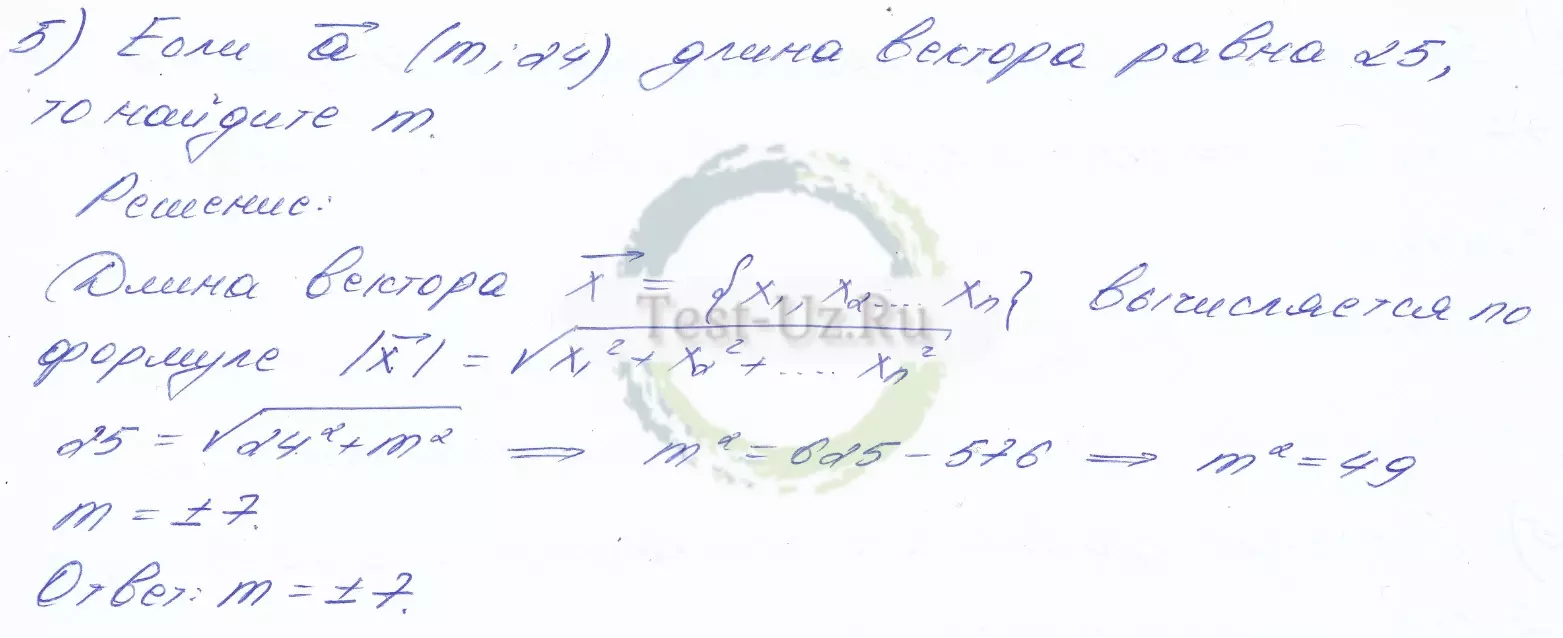 5) Если a⃗ (m; 24) длина вектора равна 25,
то найдите m.
Решение:
Длина вектора x⃗ = {x₁, x₂.... xₙ} вычисляется по
Test-Uz.Ru
формуле |x⃗| = √(x₁² + x₂² + .... xₙ²)
25 = √(24² + m²) ⟹ m² = 625 – 576 ⟹ m² = 49
m = ± 7.
Ответ: m = ± 7.